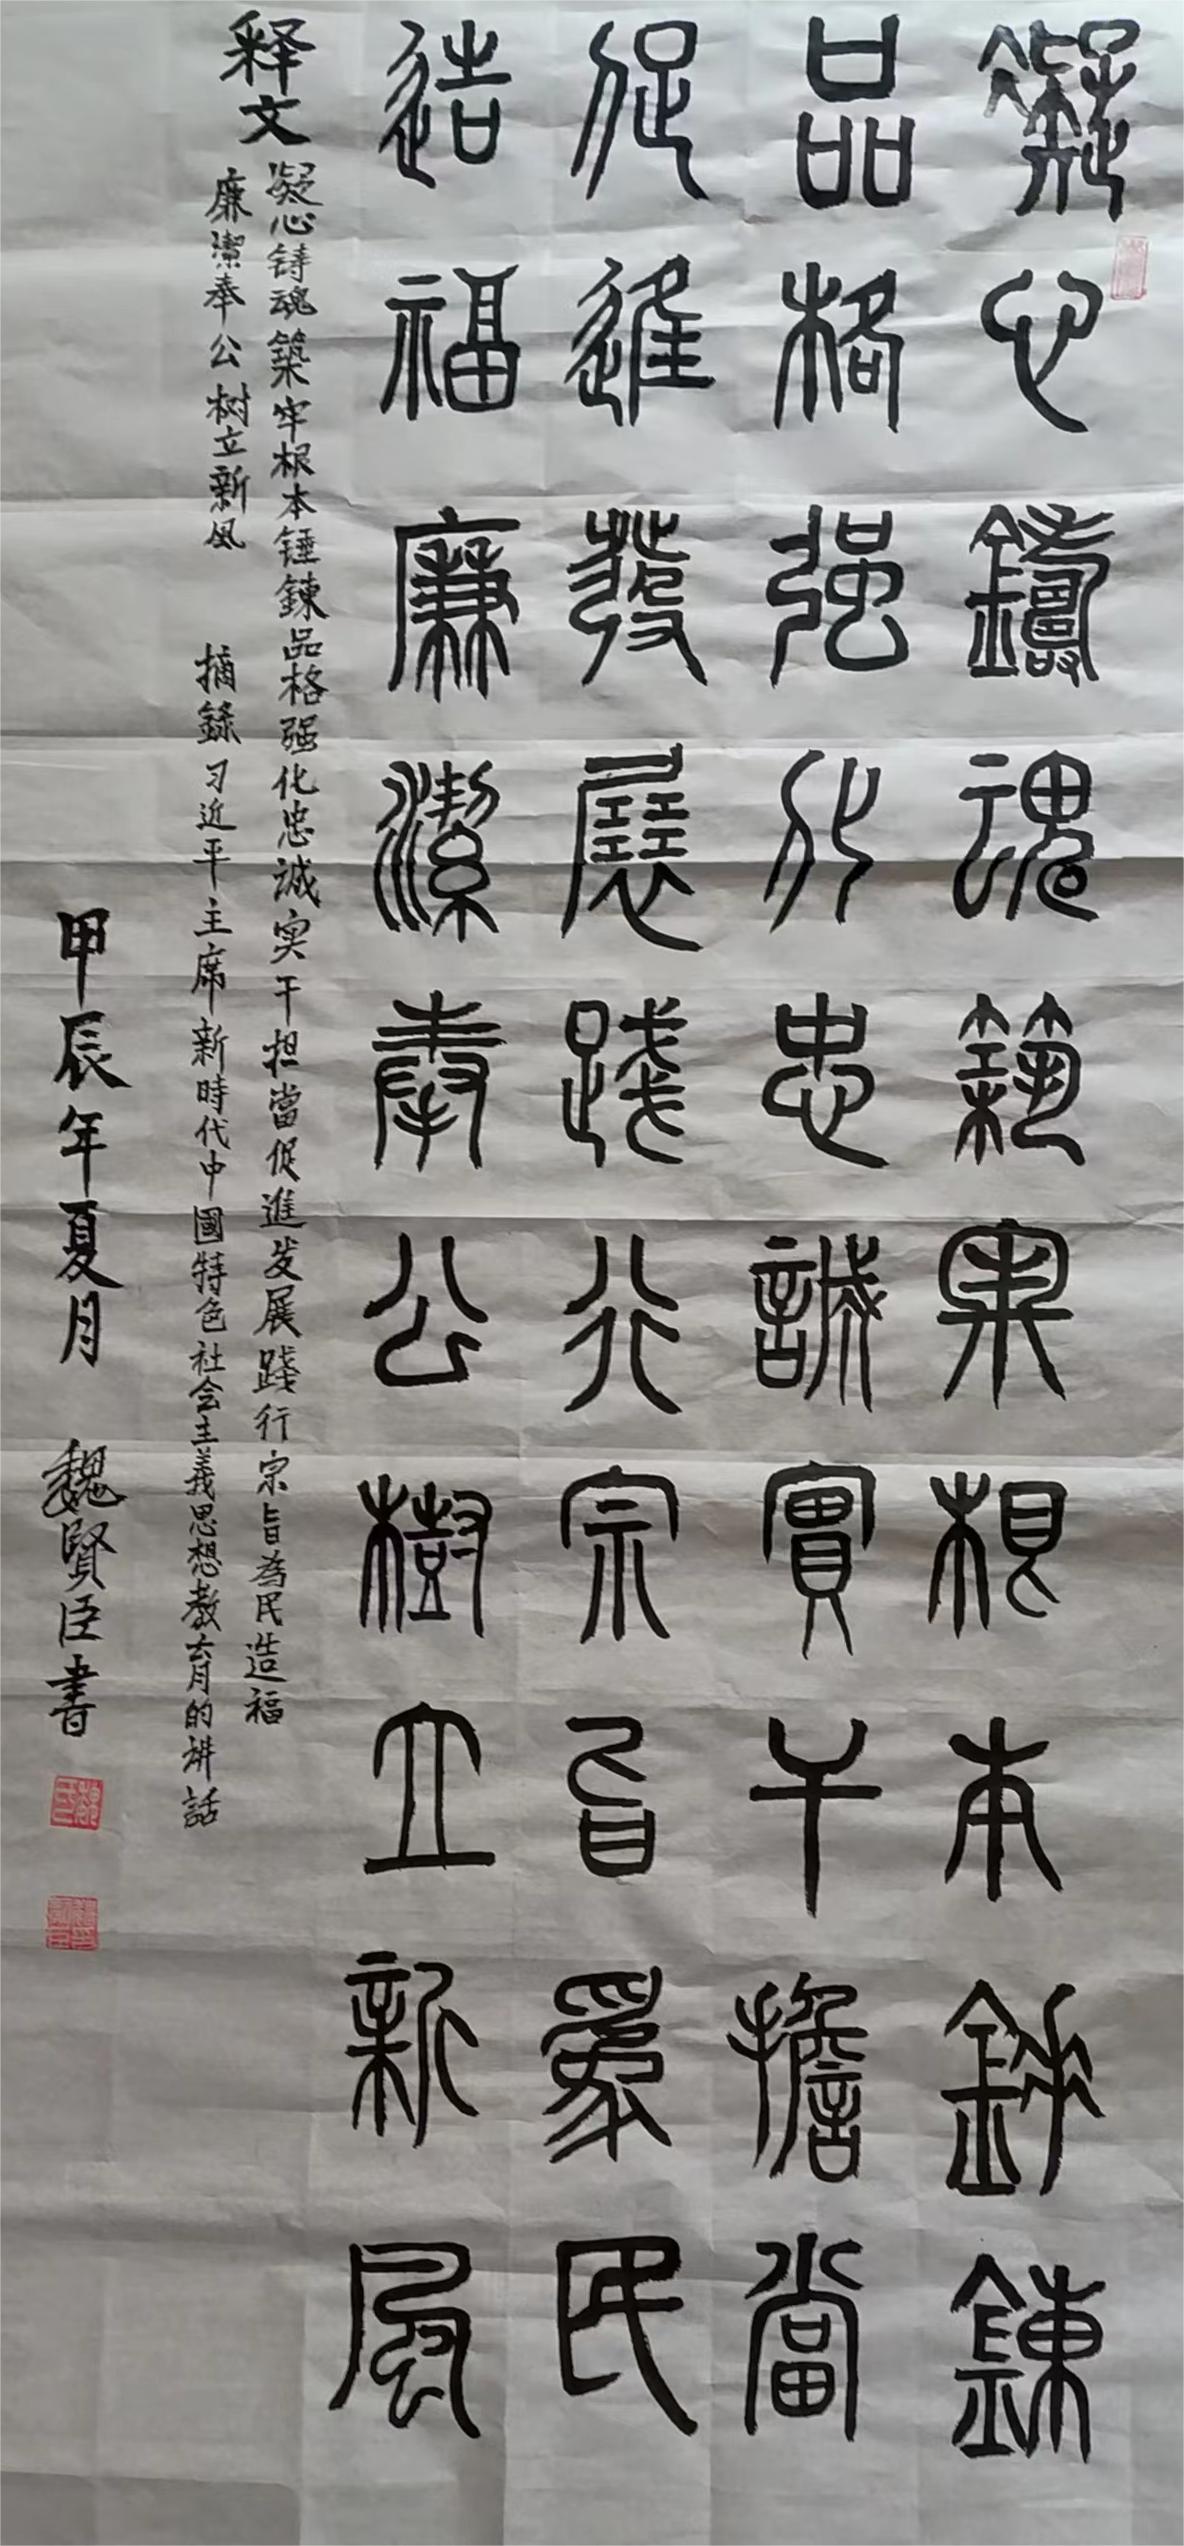 凝心鑄魂築牢根本錘鍊
品格强化忠誠實干擔當
促進發展踐行宗旨為民
造福廉潔奉公樹立新風
释文
凝心铸魂築牢根本锤鍊品格强化忠诚实干担當促進发展踐行宗旨為民造福
廉潔奉公树立新风 摘録习近平主席新時代中國特色社会主義思想教育的讲話
甲辰年夏月 魏賢臣書